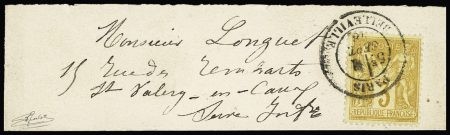 Monsieur Longuet
15 Rue des Remparts
St Valery-en-Caux
Seine Infre
PARIS
BELLEVILLE
SEPT
REPUBLIQUE FRANCAISE